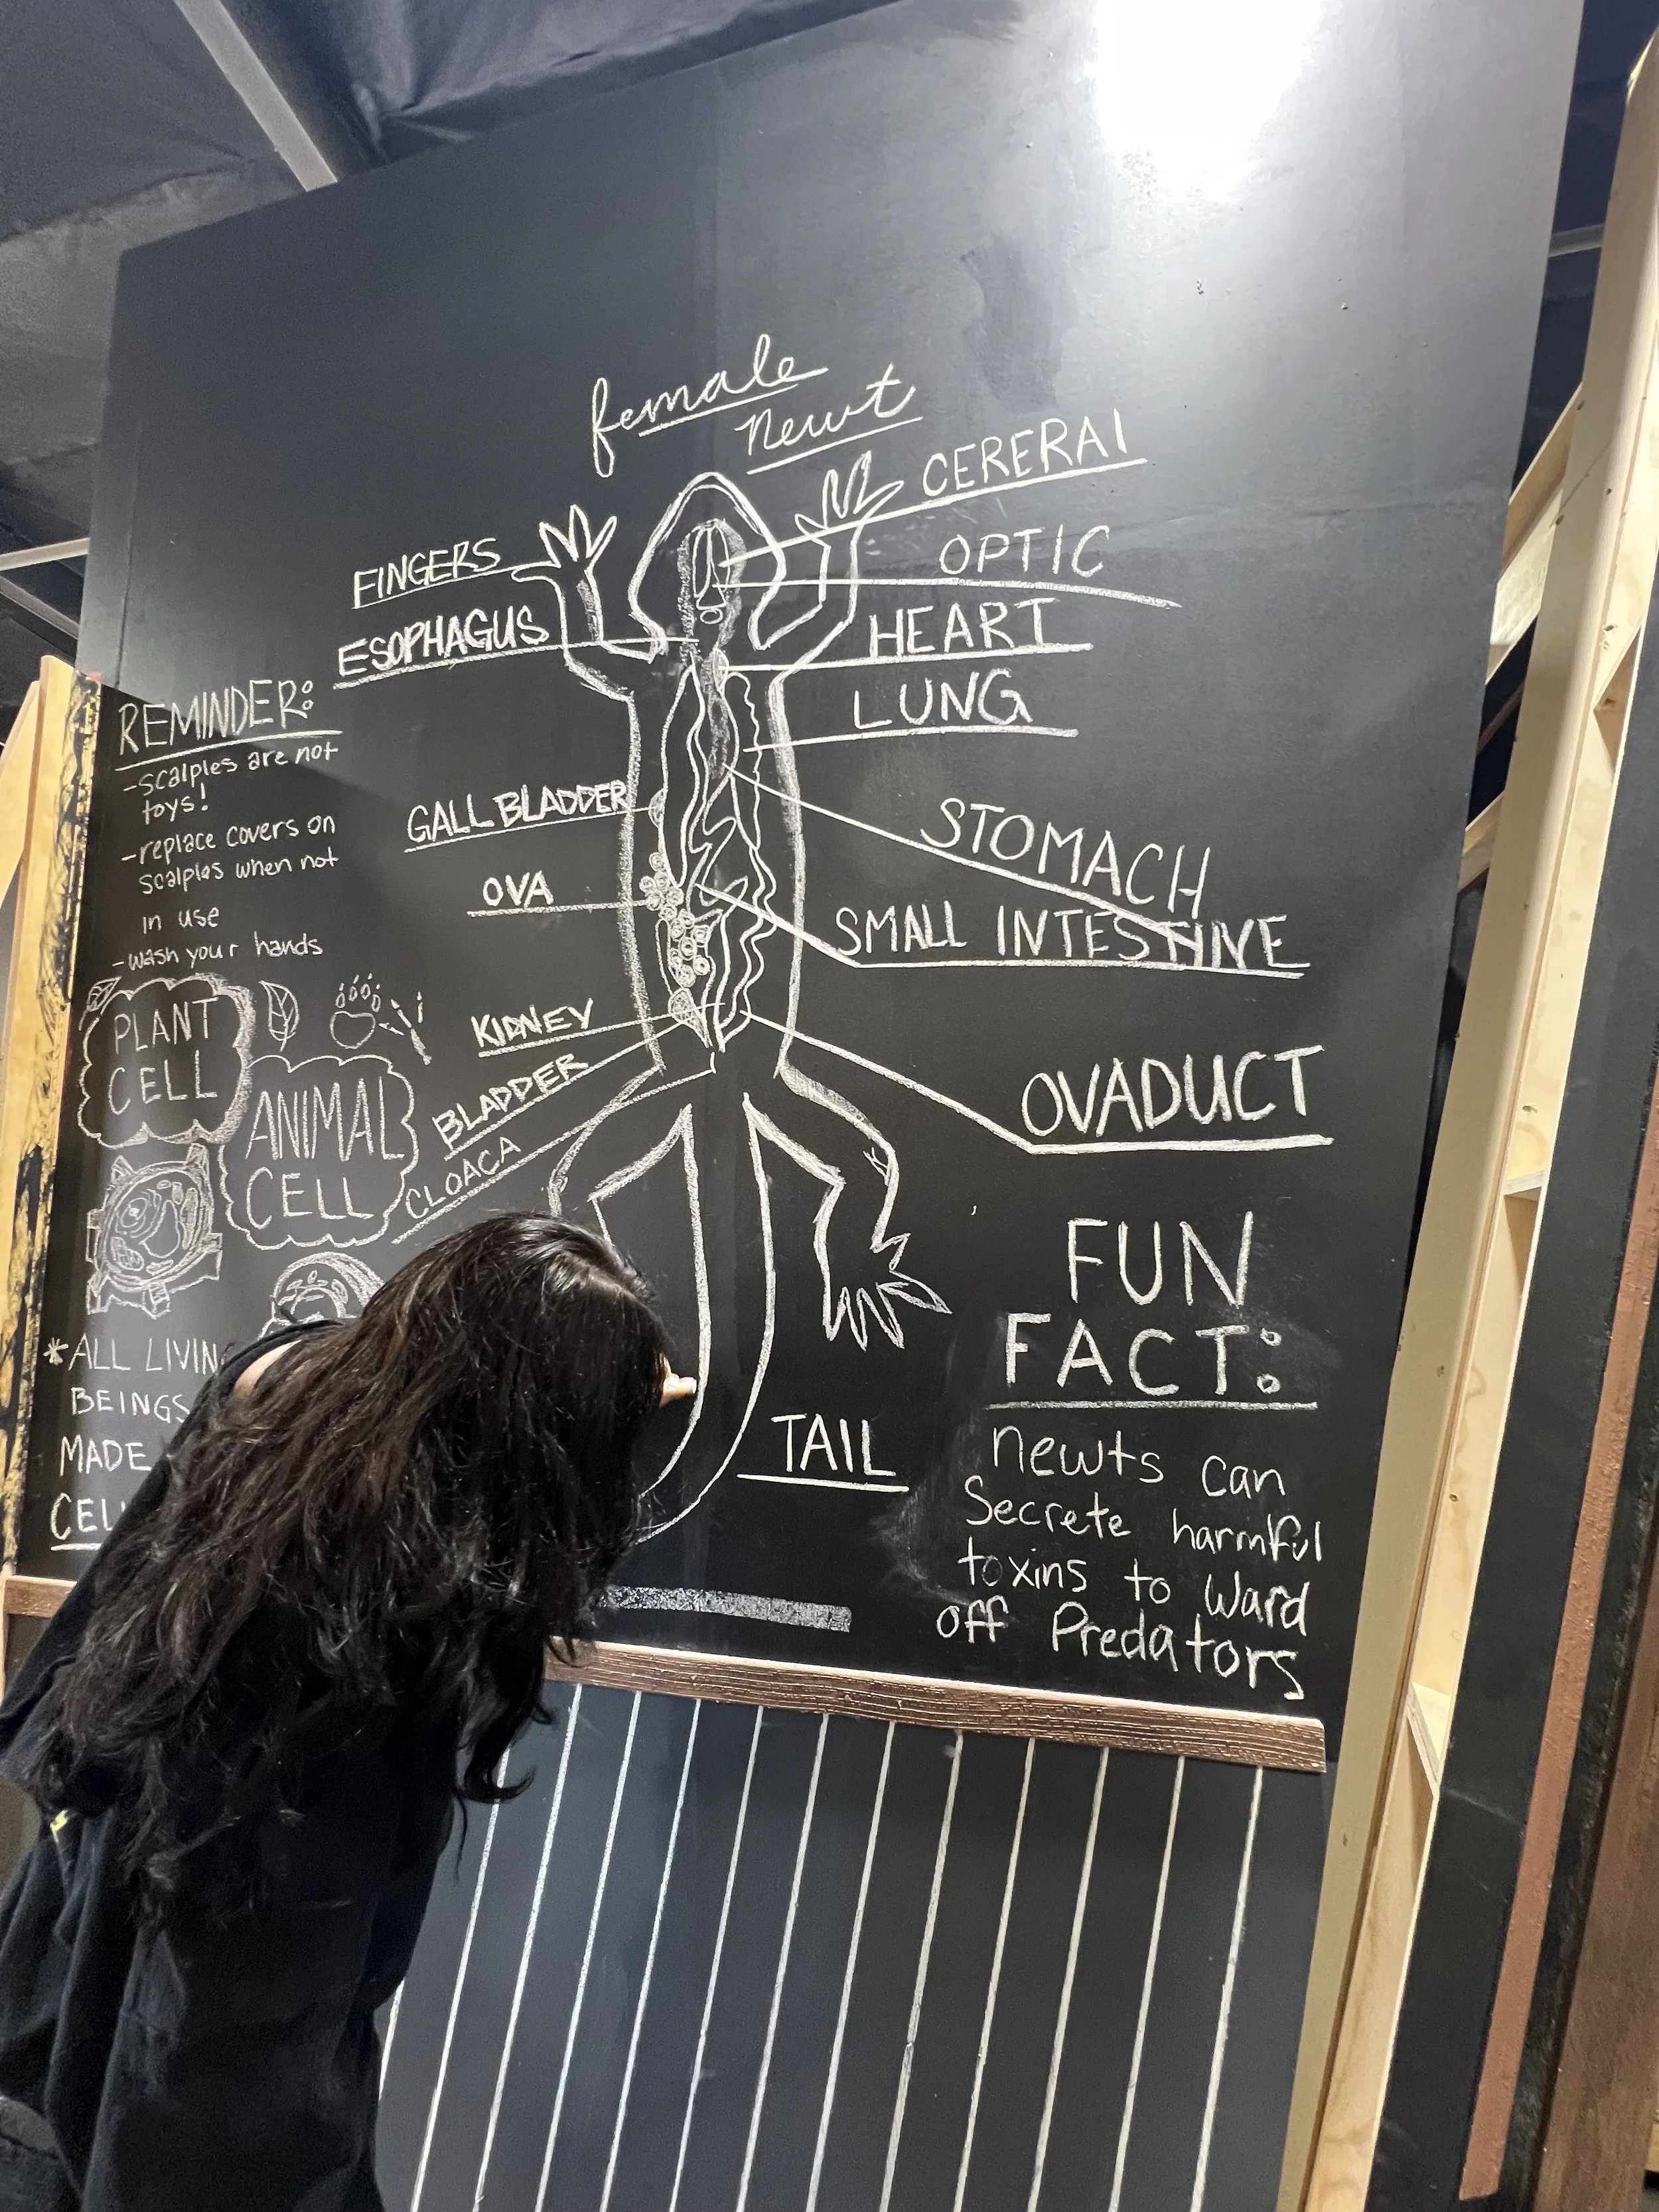 female
newt
CERERAl
FINGERS
OPTIC
ESOPHAGUS
HEART
LUNG
REMINDER:
-scalples are not
toys!
-replace covers on
scalples when not
in use
-wash your hands
GALL BLADDER
STOMACH
OVA
SMALL INTESTINE
KIDNEY
BLADDER
CLOACA
OVADUCT
PLANT
CELL
ANIMAL
CELL
*ALL LIVIN
BEINGS
MADE
CEL
TAIL
FUN
FACT:
newts can
Secrete harmful
toxins to ward
off Predators